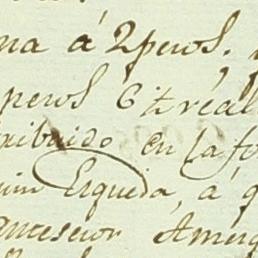 na á 2 pesos.
pesos 6 rreal
ribuido en la fo
uin Esqueda, á q
antesesor Amerg